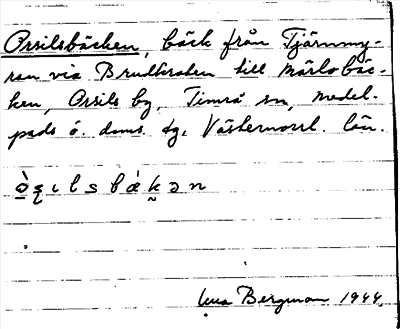 Orsilsbäcken, bäck från Tjärnmy-
ran via Brudkroken till Märlobäc-
ken, Orsils by, Timrå sn, Medel-
pads ö. doms. tg, Västernorrl. län.
Bergman 1944.